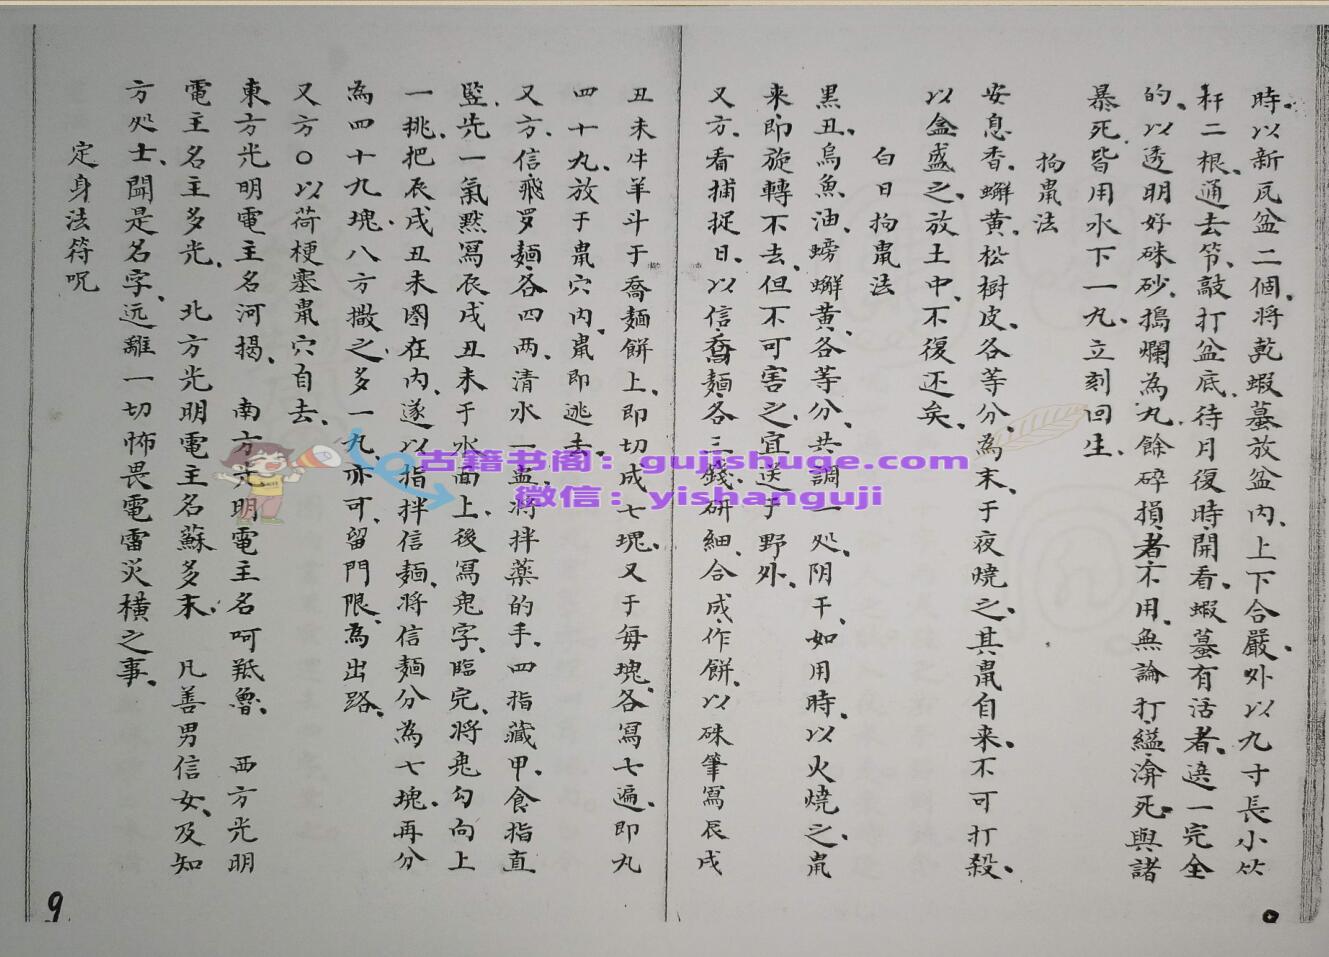 時、以新瓦盆二個、將乾蝦蟇放盆內、上下合嚴、外以九寸長小竹
杆二根、通去節、敲打盆底、待月復時、開看、蝦蟇有活者、選一完全
的、以透明好硃砂、搗爛為丸、餘碎損者不用、無論打縊渰死、與諸
暴死、皆用水下一丸、立刻回生、
拘鼠法
安息香、蠏黃、松樹皮、各等分、為末、于夜燒之、其鼠自来、不可打殺、
以盒盛之、放土中、不復还矣、
白日拘鼠法
黑丑、烏魚油、螃蠏黃、各等分、共調一处、阴干、如用時、以火燒之、鼠
来、即旋轉不去、但不可害之、宜送于野外、
又方、看捕捉日、以信、喬麵各三錢、研細、合成、作餅、以硃筆寫辰戌
丑未牛羊斗于喬麵餅上、即切成七塊、又于每塊、各寫七遍、即丸
四十九、放于鼠穴內、鼠即逃去、
又方、信飛罗麵、各四两、清水一盂、將拌藥的手、四指藏甲、食指直
竖、先一氣默寫辰戌丑未于水面上、後寫鬼字、臨完、將鬼勾向上
一挑、把辰戌丑未圈在內、遂以指拌信麵、將信麵分為七塊、再分
為四十九塊、八方撒之、多一九、亦可、留門限、為出路、
又方○以荷梗塞鼠穴自去、
東方光明電主名河揭、 南方光明電主名呵羝魯、 西方光明
電主名主多光、 北方光明電主名蘇多末、 凡善男信女、及知
方处士、聞是名字、远離一切怖畏電雷災橫之事、
定身法符呪
9
古籍书阁：gujishuge.com
微信：yishanguji